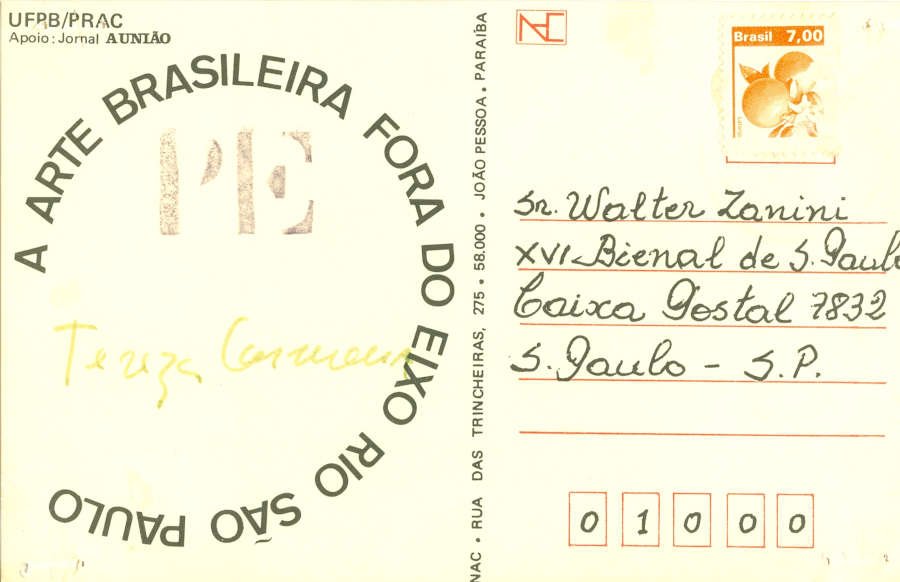 UFPB/PRAC
Apoio: Jornal A UNIÃO
A ARTE BRASILEIRA FORA DO EIXO RIO SÃO PAULO
PE
Tereza
NAC • RUA DAS TRINCHEIRAS, 275 • 58.000 • JOÃO PESSOA • PARAÍBA
NAC
Brasil 7,00
Sr. Walter Zanini
XVI Bienal de S. Paulo
Caixa Postal 7832
S. Paulo - S.P.
0 1 0 0 0